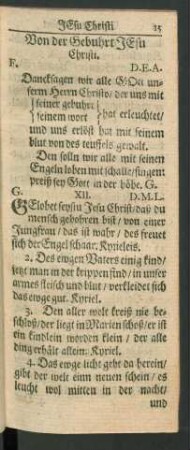 JEsu Christi. 25
Von der Gebuhrt JEsu
Christi.
F. D.E.A.
Dancksagen wir alle GOtt un-
serm HErrn Christo/ der uns mit
seiner geburt
seinem wort hat erleuchtet/
und uns erlöst hat mit seinem
blut von des teuffels gewalt.
Den solln wir alle mit seinen
Engeln loben mit schalle/singen:
preiß sey Gott in der höhe. G.
G. XII. D.M.L.
GElobet seystu Jesu Christ/ daß du
mensch gebohren bist/ von einer
Jungfrau/ das ist wahr/ des freuet
sich der Engel schaar. Kyrieleis.
2. Des ewgen Vaters einig kind/
jetzt man in der krippen find/ in unser
armes fleisch und blut/ verkleidet sich
das ewge gut. Kyriel.
3. Den aller welt kreiß nie be-
schloß/ der liegt in Marien schoß/ er ist
ein kindlein worden klein/ der alle
ding erhält allein. Kyriel.
4. Das ewge licht geht da herein/
gibt der welt einn neuen schein/ es
leucht wol mitten in der nacht/
und